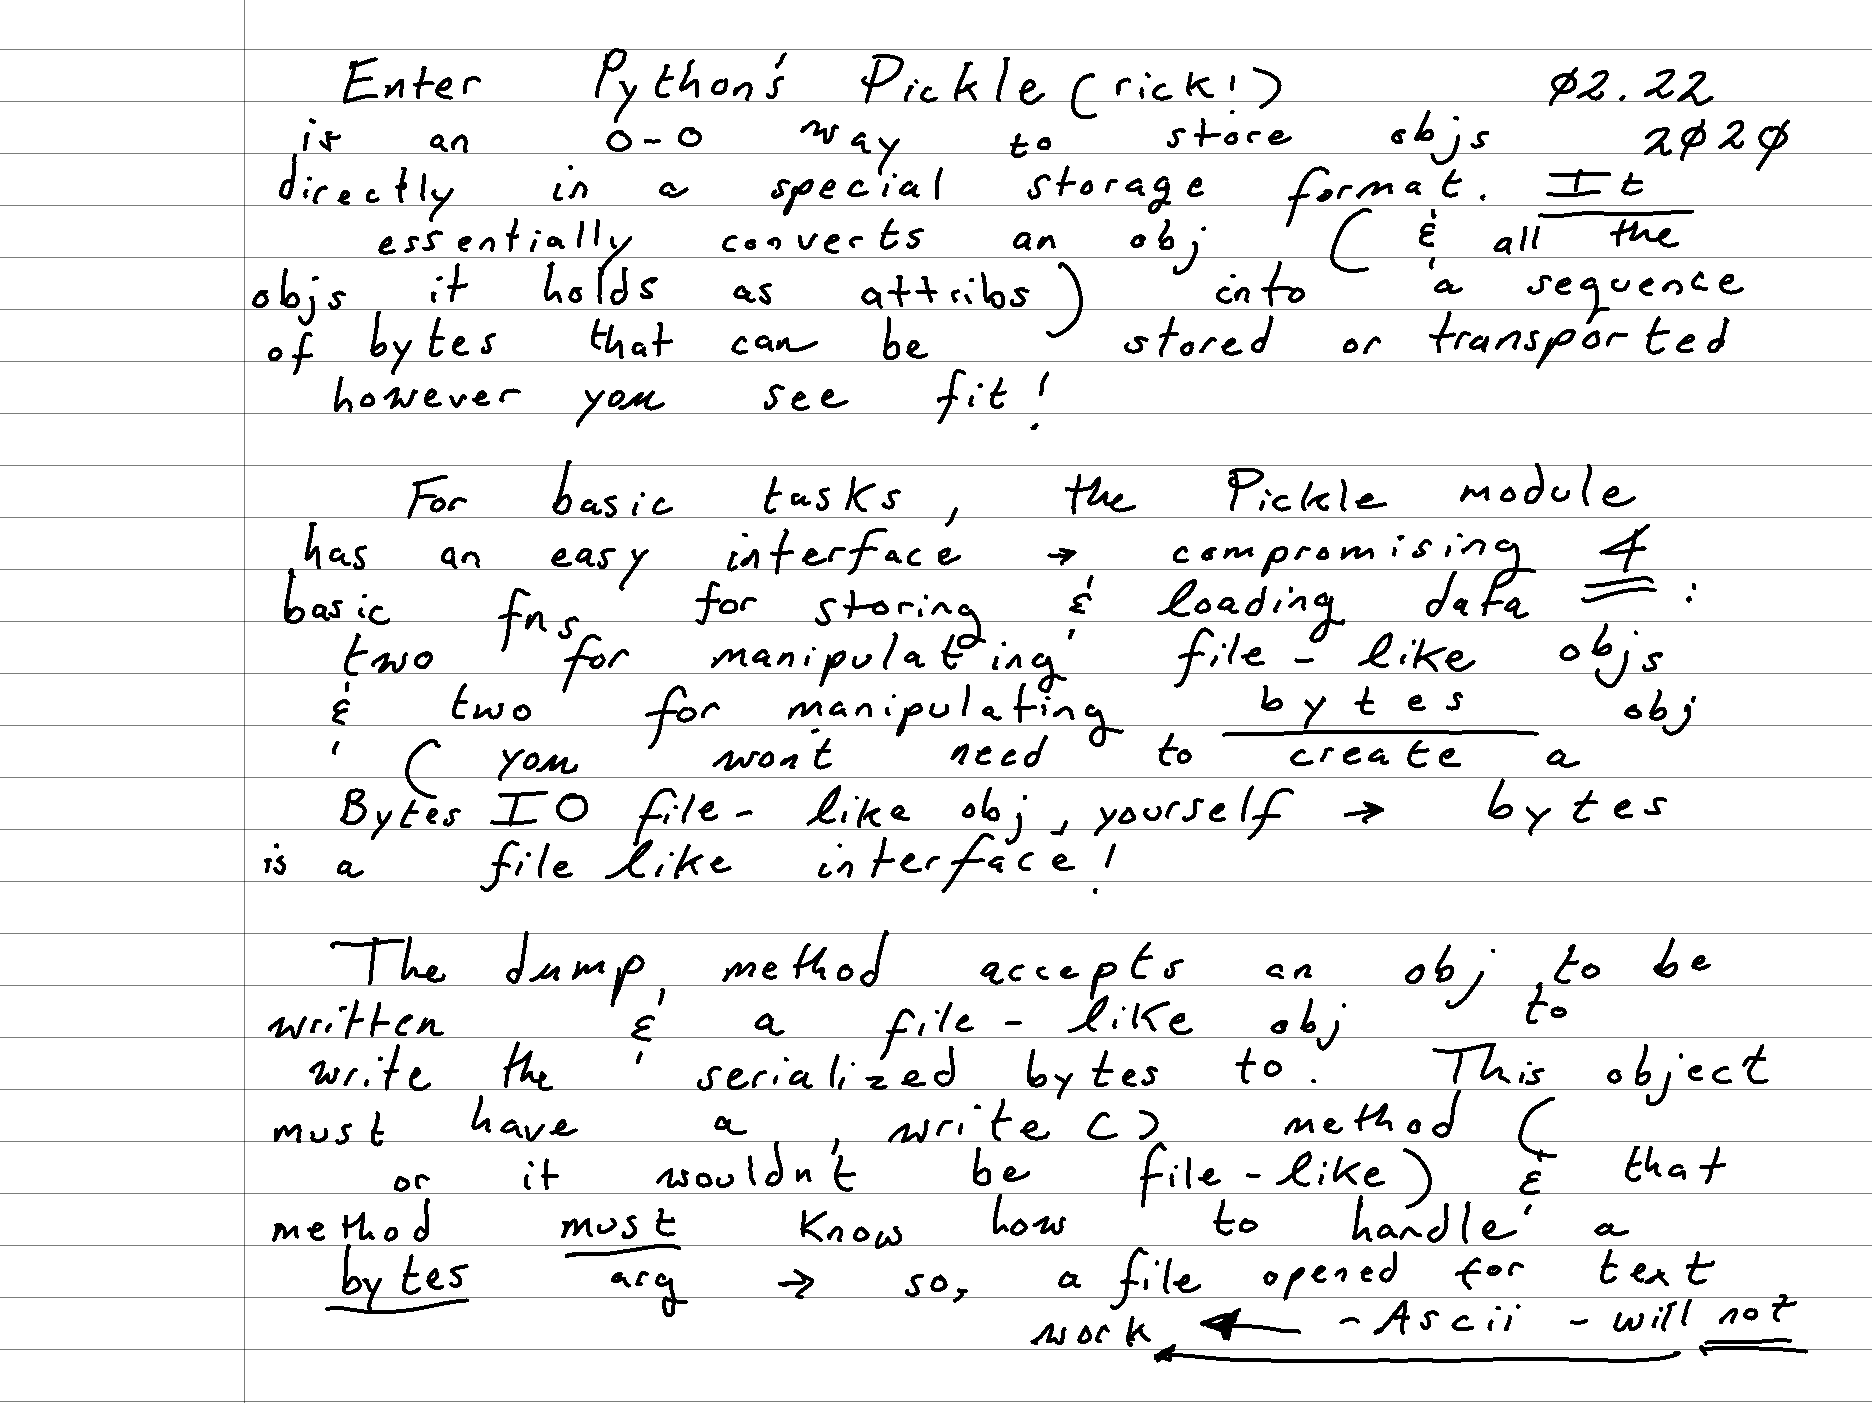 Enter Python's Pickle (rick!) Ø2.22
is an O-O way to store objs 2Ø2Ø
directly in a special storage format. It
essentially converts an obj ( & all the
objs it holds as attribs) into a sequence
of bytes that can be stored or transported
however you see fit!
For basic tasks, the Pickle module
has an easy interface → compromising 4
basic fns for storing & loading data :
two for manipulating file-like objs
& two for manipulating bytes obj
( you won't need to create a
Bytes IO file-like obj, yourself → bytes
is a file like interface!
The dump, method accepts an obj to be
written & a file-like obj to
write the serialized bytes to. This object
must have a write() method (
or it wouldn't be file-like) & that
method must know how to handle a
bytes arg → so, a file opened for text
work ← - Ascii - will not